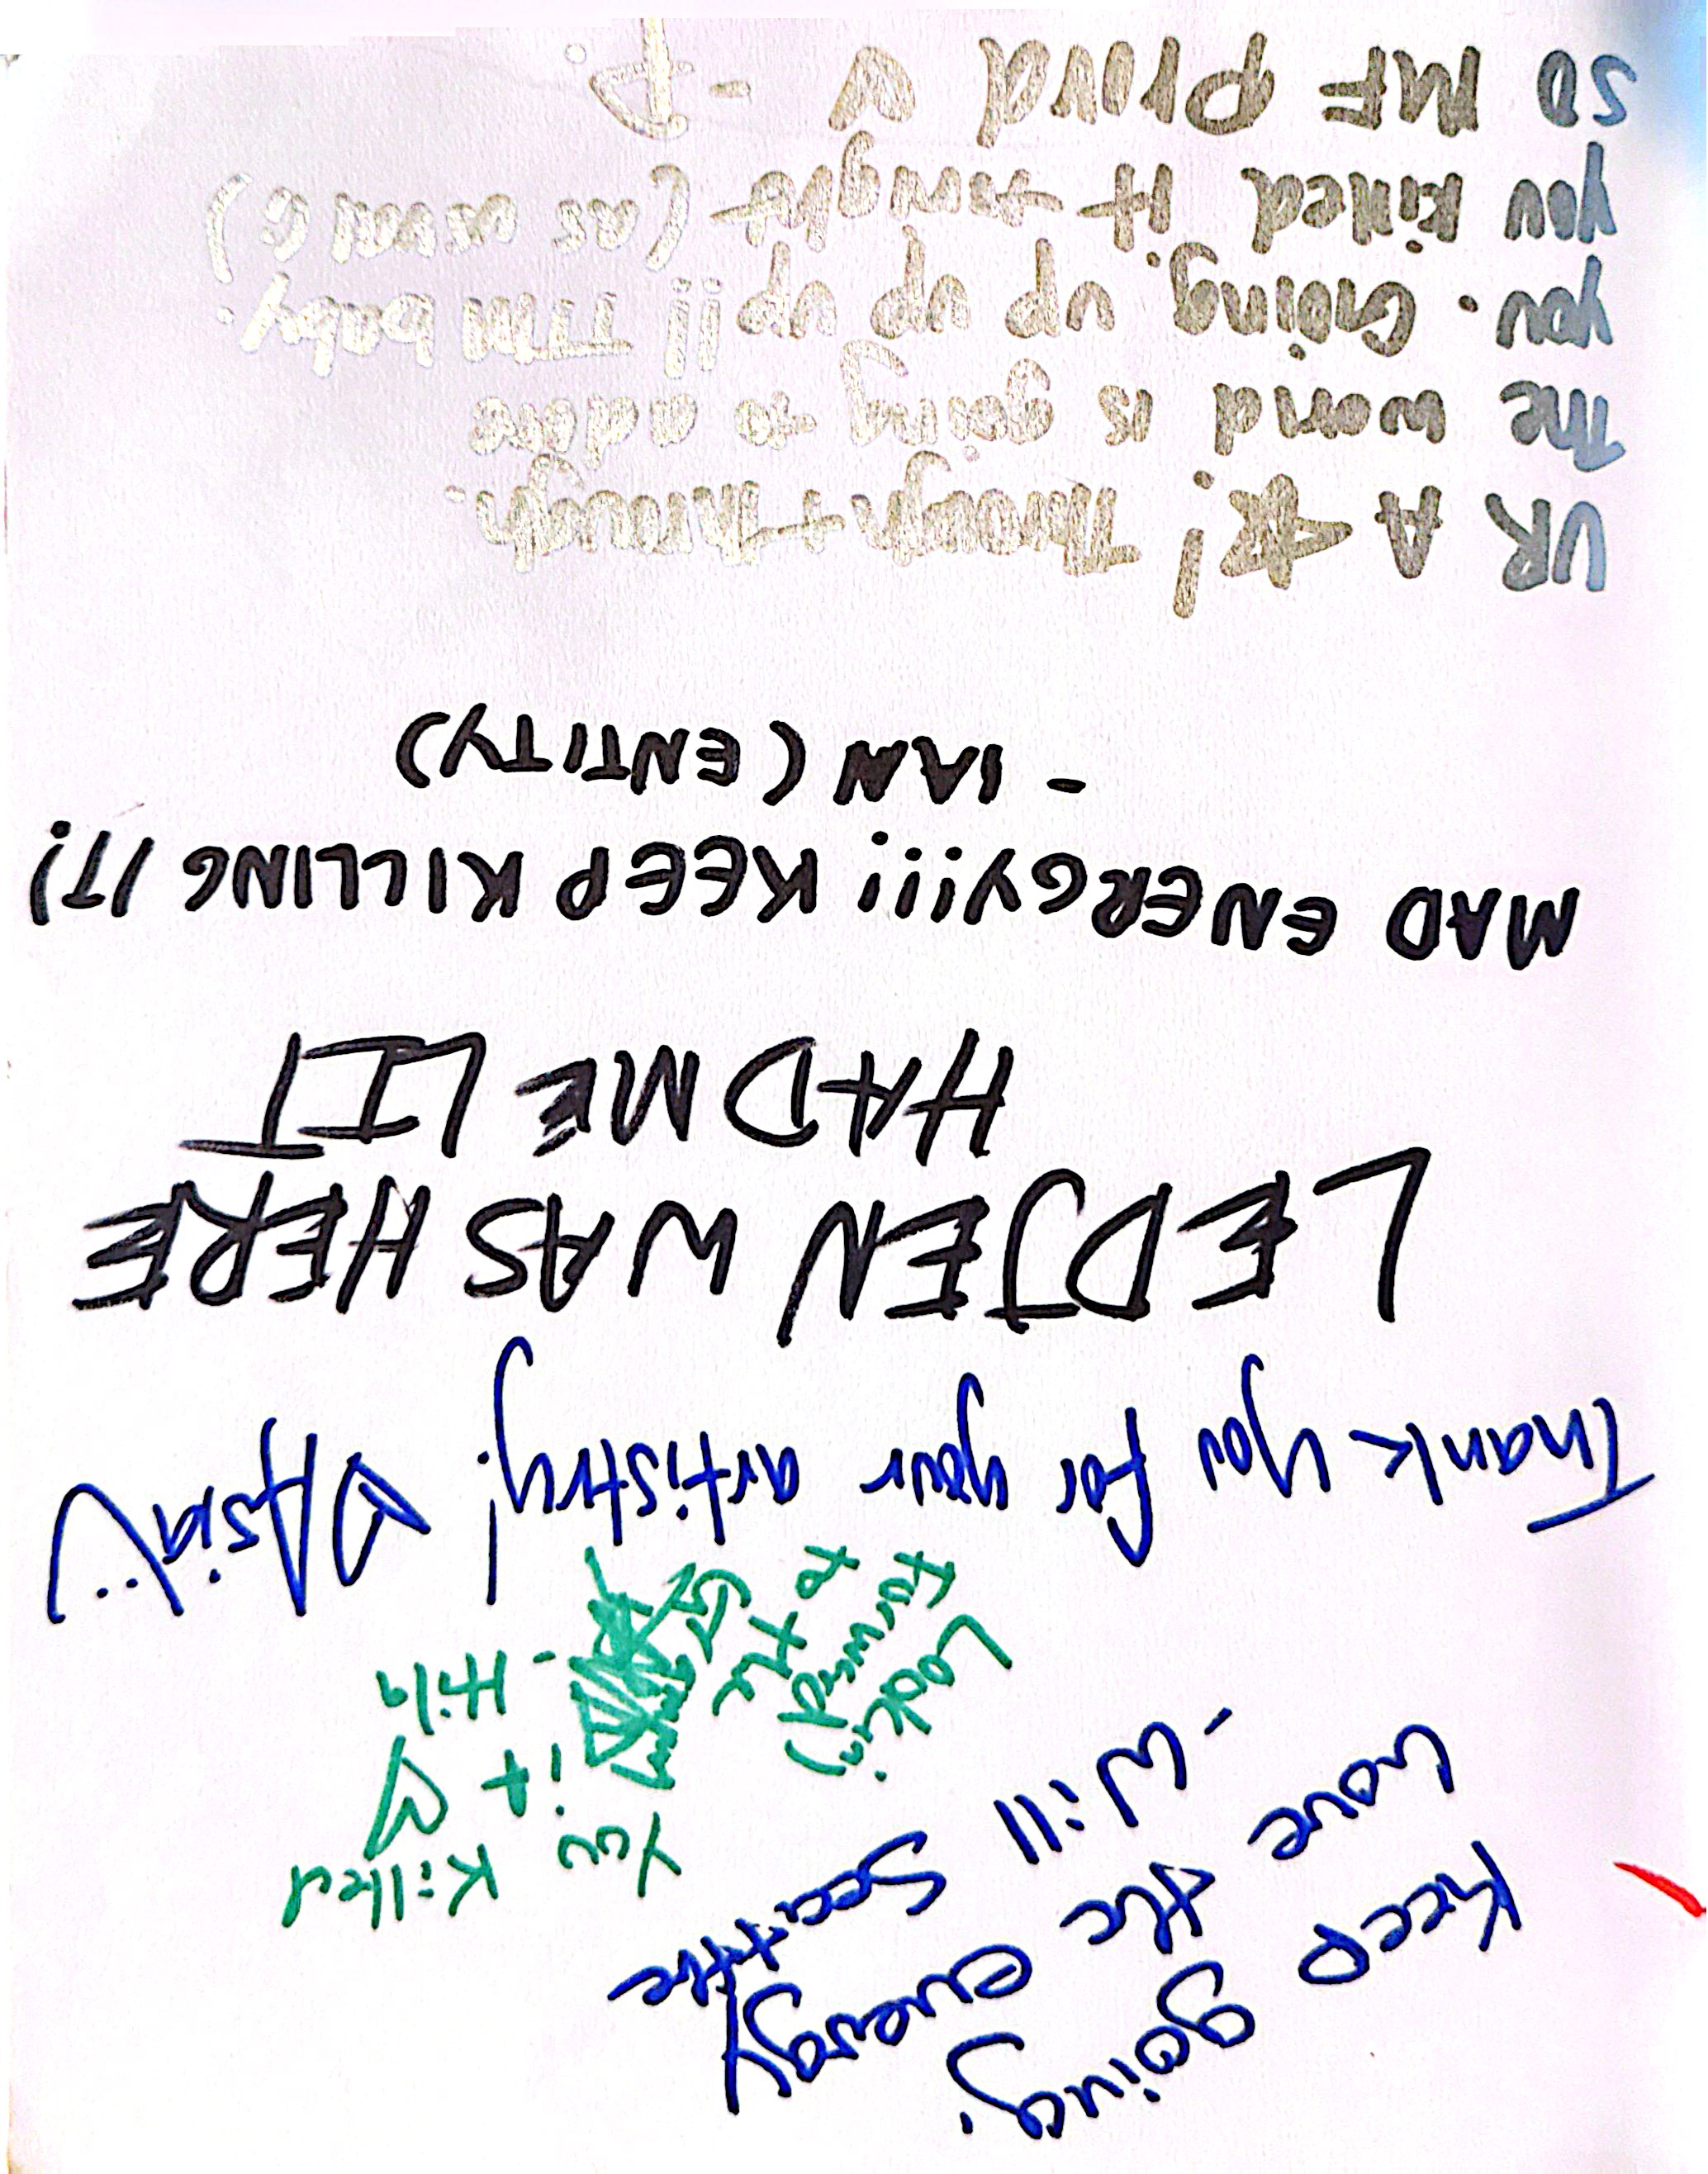 Keep going!
Love the energy
-Will Seattle
You Killed
it ♡
Lookin
forward
to the
Thank you for your artistry! ♡ Asia
LEDJEN WAS HERE
HAD ME LIT
MAD ENERGY!!! KEEP KILLING IT!
- IAN (ENTITY)
UR A ☆! Through + through.
The world is going to adore
you. Going up up up!! TTM baby.
you killed it tonight (as usual G)
SO MF proud